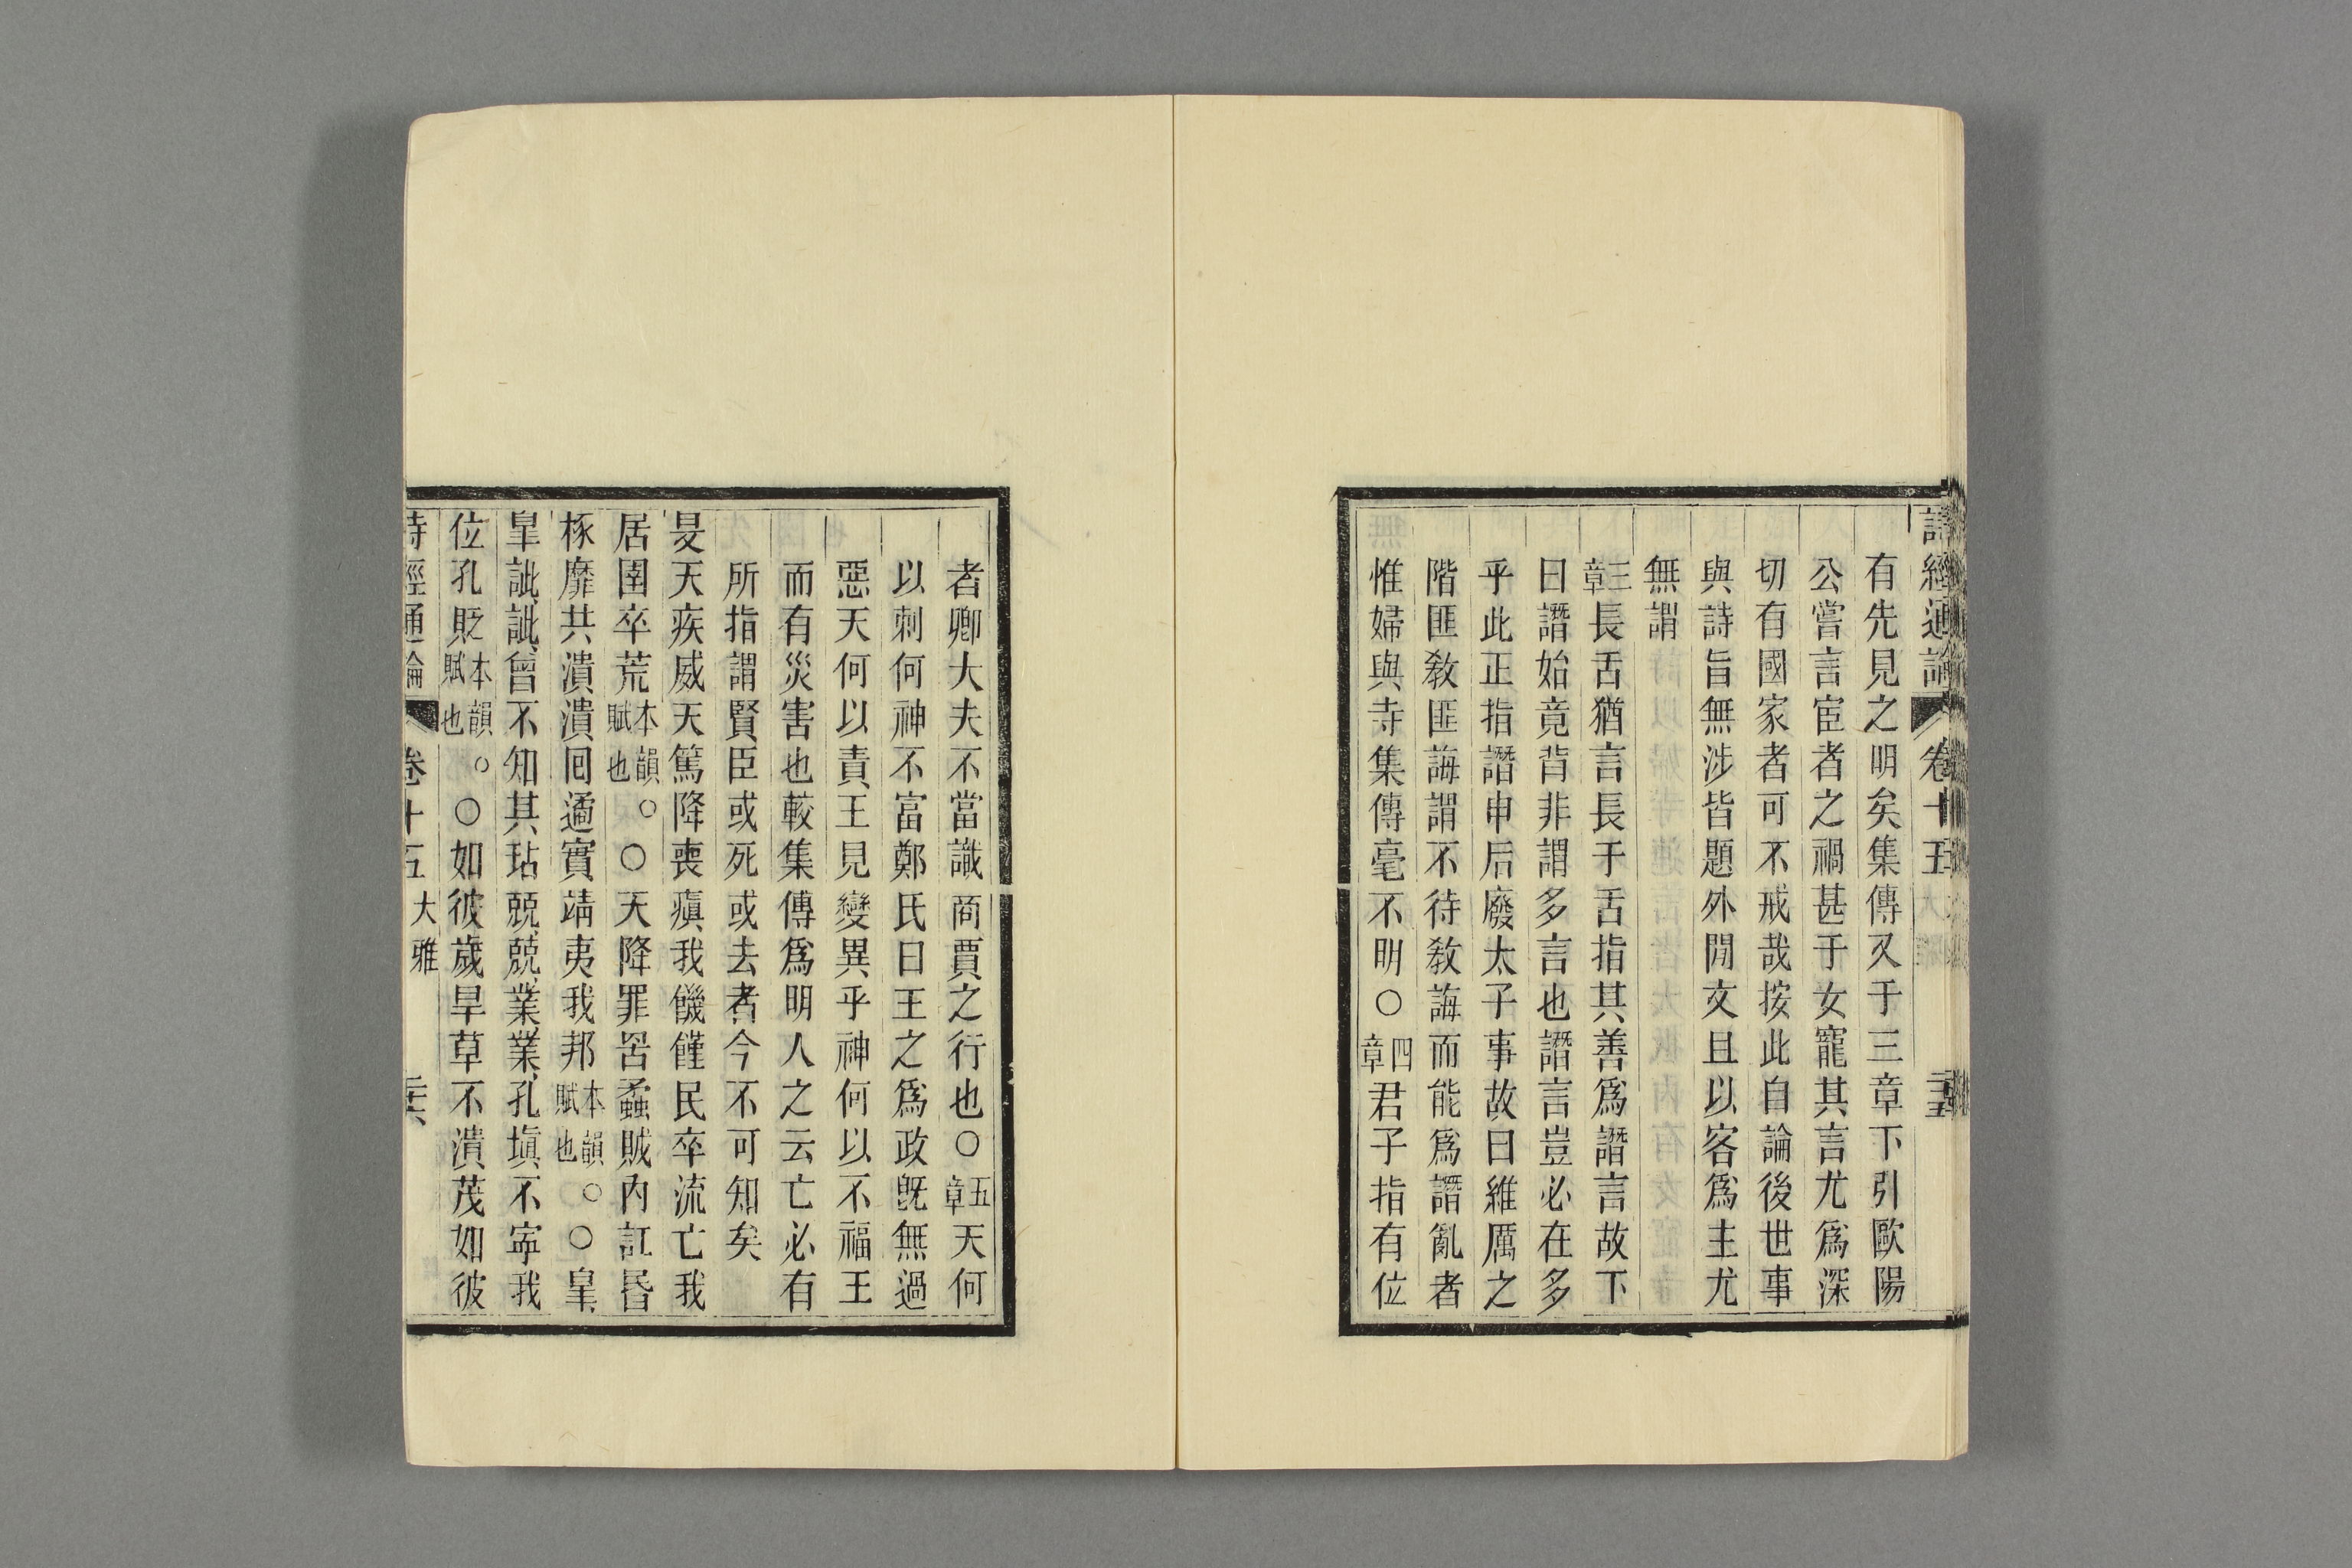 詩經通論 卷十五 大雅 二十五
有先見之明矣集傳又于三章下引歐陽
公嘗言宦者之禍甚于女寵其言尤爲深
切有國家者可不戒哉按此自論後世事
與詩旨無涉皆題外閒文且以客爲主尤
無謂
三章長舌猶言長于舌指其善爲譖言故下
曰譖始竟背非謂多言也譖言豈必在多
乎此正指譖申后廢太子事故曰維厲之
階匪教匪誨謂不待教誨而能爲譖亂者
惟婦與寺集傳毫不明〇四章君子指有位
者卿大夫不當識商賈之行也〇五章天何
以刺何神不富鄭氏曰王之爲政旣無過
惡天何以責王見變異乎神何以不福王
而有災害也較集傳爲明人之云亡必有
所指謂賢臣或死或去者今不可知矣
旻天疾威天篤降喪瘨我饑饉民卒流亡我
居圉卒荒本韻○賦也。〇天降罪罟蟊賊內訌昬
椓靡共潰潰囘遹實靖夷我邦本韻○賦也。〇臯
臯訿訿曾不知其玷兢兢業業孔塡不寧我
位孔貶本韻○賦也。〇如彼歲旱草不潰茂如彼
詩經通論 卷十五 大雅 二十六